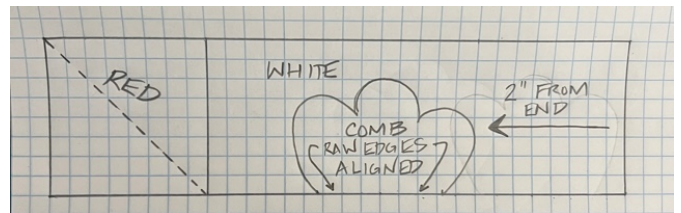 RED
WHITE
COMB
RAW EDGES
ALIGNED
2" FROM
END